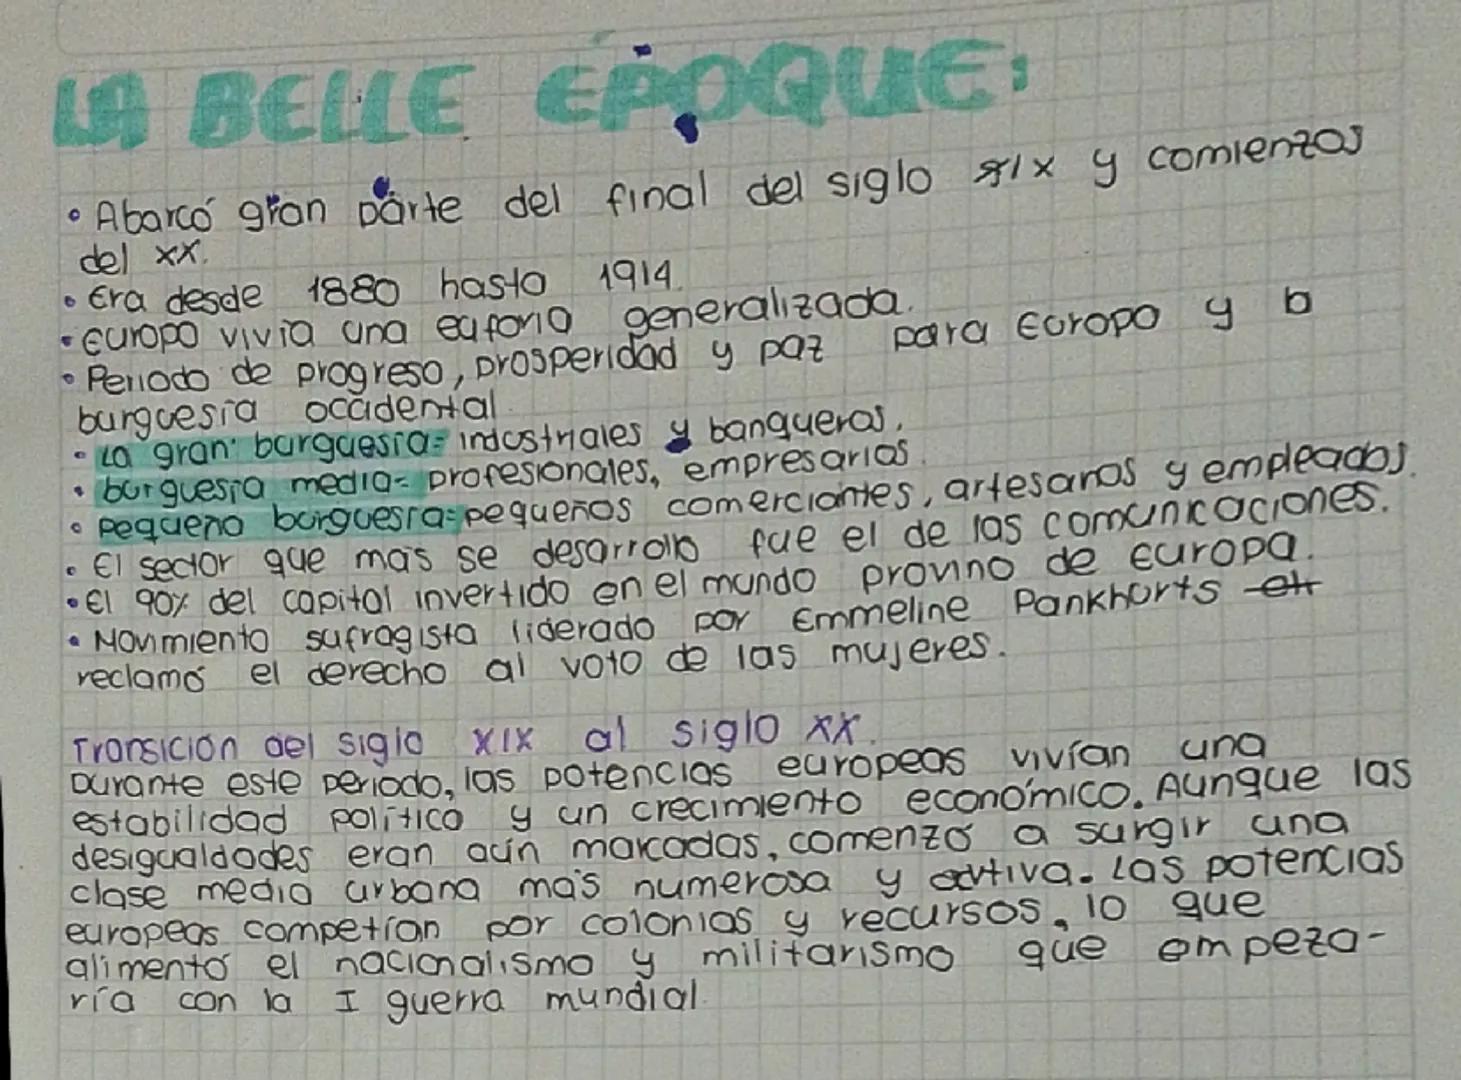 LA BELLE ÉPOQUE:
• Abarcó gran parte del final del siglo XIX y comienzos
del XX.
• Era desde 1880 hasta 1914.
• Europa vivía una euforia generalizada.
• Periodo de progreso, prosperidad y paz para Europa y la
burguesía occidental.
• La gran burguesía= industriales y banqueros.
• burguesía media= profesionales, empresarios.
• pequeña burguesía= pequeños comerciantes, artesanos y empleados.
• El sector que más se desarrolló fue el de las comunicaciones.
• El 90% del capital invertido en el mundo provino de Europa.
• Movimiento sufragista liderado por Emmeline Pankhurts
reclamó el derecho al voto de las mujeres.
Transición del siglo XIX al siglo XX.
Durante este periodo, las potencias europeas vivían una
estabilidad política y un crecimiento económico. Aunque las
desigualdades eran aún marcadas, comenzó a surgir una
clase media urbana más numerosa y activa. Las potencias
europeas competían por colonias y recursos, lo que
alimentó el nacionalismo y militarismo que empeza-
ría con la I guerra mundial.